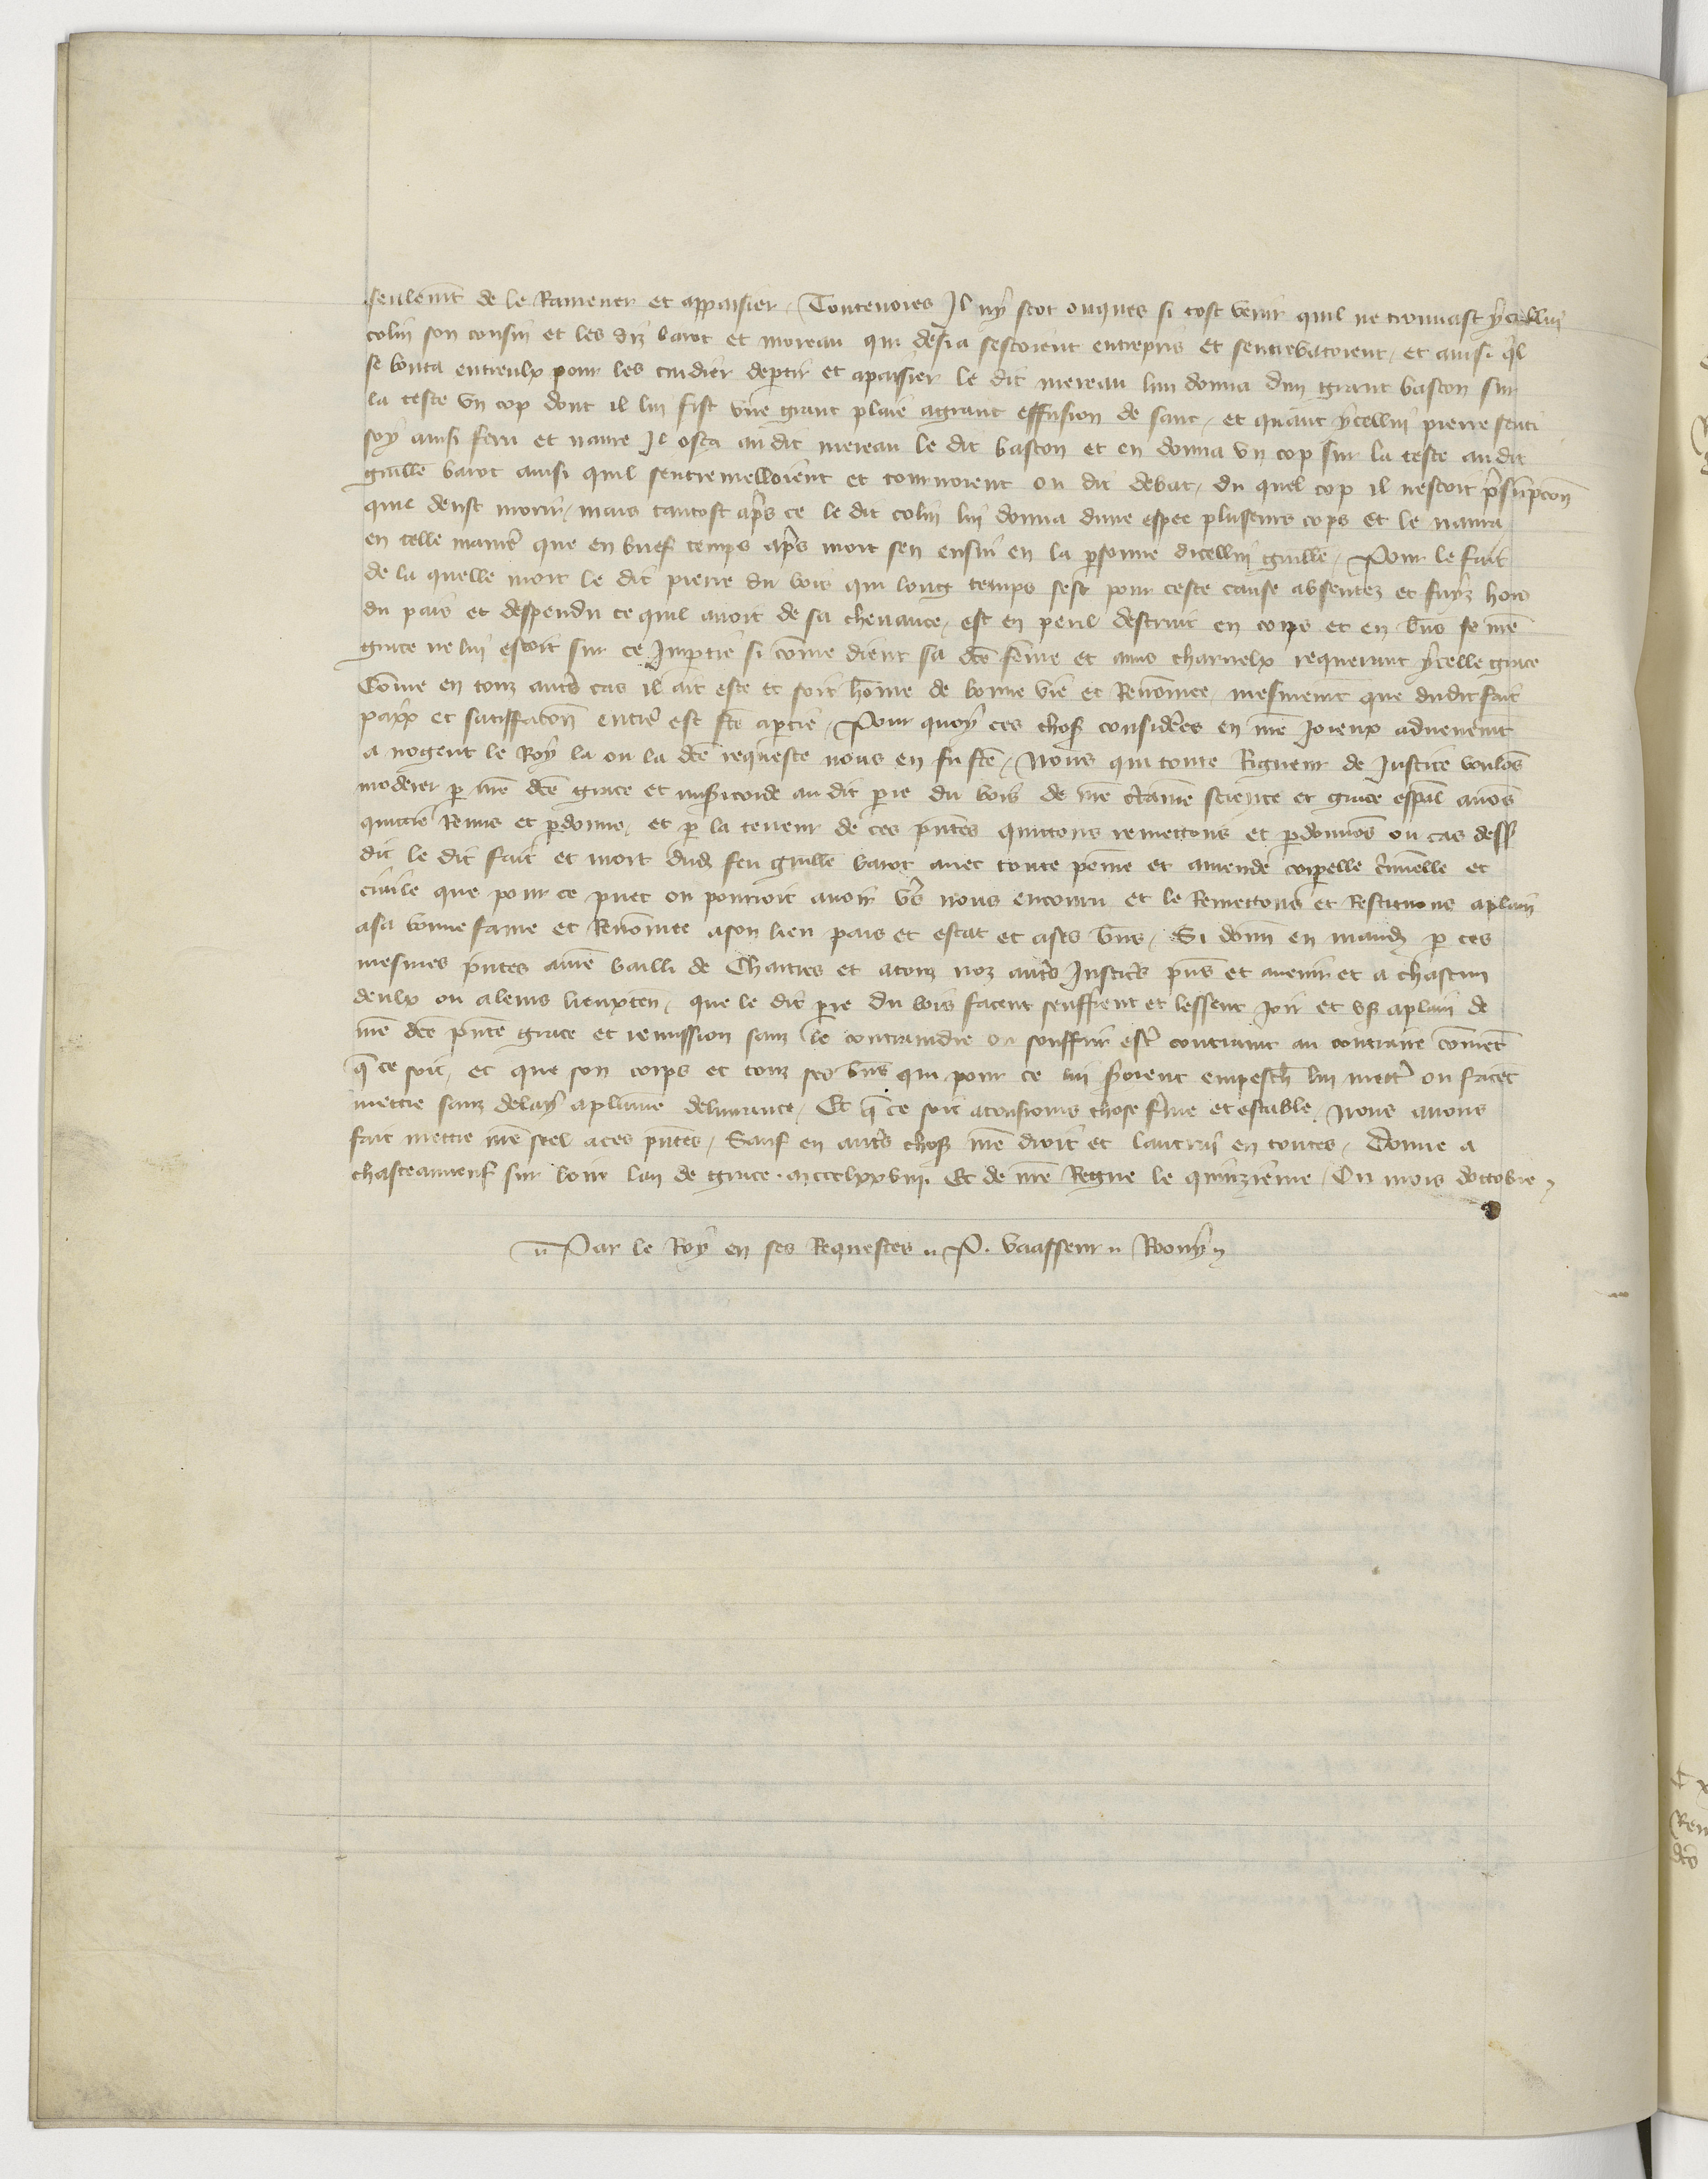 seulemt de le Ramener et appaisier. Toutevoies Il ny scot onques si tost venir quil ne trouvast ycellui
colin son cousin et les diz barot et moreau qui desia sestoient entrepris et sentrebatoient, et ainsi ql
se bouta entreulx pour les cuidier deptir et apaisier le dit mereau lui donna dun grant baston sur
la teste un cop dont il lui fist une grant plaie agrant effusion de sanc, et quant ycellui pierre senti
soy ainsi feru et navre Il osta audit mereau le dit baston et en donna un cop sur la teste audit
guille barot ainsi quil sentremelloient et tournoient ou dit debat, du quel cop il nestoit psupcon
quil deust morir, mais tantost aps ce le dit colin lui donna dune espee plusseurs cops et le navra
en telle manie que en brief temps aps mort sen ensui en la psonne dicellui guille. Pour le fait
de la quelle mort le dit pierre du bois qui long temps sest pour ceste cause absentez et fuyz hors
du pais et despendu ce quil avoit de sa chevance, est en peril destruit en corps et en bns se nre
grace ne lui estoit sur ce Imptie si come dient sa dce feme et amis charnelx requerant ycelle grace
Come en touz auts cas il ait este et soit home de bonne vie et Renomee, mesmemt que dudit fait
paix et satiffacon entie est fce aptie. Pour quoy ces choses considees en nre Joieux advenemt
a nogent le Roy la ou la dce requeste nous en fu fce, Nous qui toute Rigueur de Justice voulos
moderer p nre dce grace et misicorde au dit pre du bois de nre ctaine science et grace espal avos
quictie Remis et pdonne, et p la teneur de ces pntes quittons remettons et pdonnos ou cas dess
dit le dit fait et mort dud feu guille barot avec toute peinne et amende corpelle cimelle et
civile que pour ce puet ou pourroit avoir vs nous encouru et le Remettons et Restituons aplain
asa bonne fame et Renomee ason lieu pais et estat et ases bns, Si donn en mand p ces
mesmes pntes aure bailli de Chartres et atouz noz auts Justics pns et avenir et a chascun
deulx ou aleurs lieuxten, que le dit pre du bois facent seuffrent et lessent Joir et us aplain de
nre dce pnte grace et remission sanz le contraindre ou souffrir est contraint au contraire comet
q ce soit, et que son corps et touz ses bns qui pour ce lui soient empesch lui mett ou facet
mettre sanz delay aplaine delivrance, Et q ce soit atousiours chose fme et estable Nous avons
fait mettre nre scel aces pntes, Sauf en auts choses nre droit et lautruy en toutes. Donne a
chasteauneuf sur loir lan de grace . mccclxxviii. Et de nre Regne le quinzieme, Ou mois doctobre
Par le Roy en ses Requestes .. P. vaasseur .. Roony